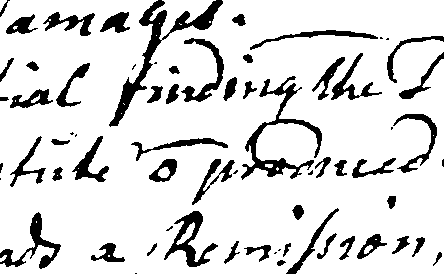 damages.
tial finding the
tute o produced
ads a Remission,